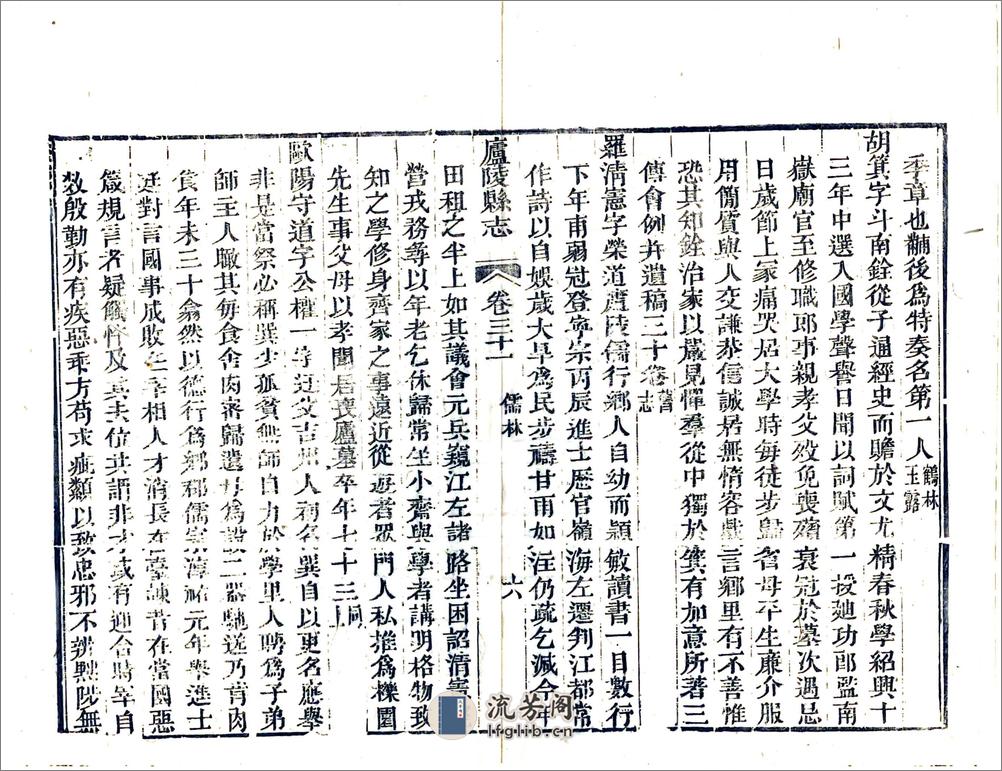 季章也黼後爲特奏名第一人鶴林玉露
胡箕字斗南銓從子通經史而贍於文尤精春秋學紹興十
三年中選入國學聲譽日閒以詞賦第一授廸功郎監南
嶽廟官至修職郎事親孝父歿免喪猶衰冠於墓次遇忌
日歲節上冢痛哭居大學時每徒步歸省母平生廉介服
用簡質與人交謙恭信誠居無惰容歡言鄉里有不善惟
恐其知銓治家以嚴見憚羣從中獨於箕有加意所著三
傳會例并遺稿二十卷舊志
羅淸憲字榮道廬陵儒行鄉人自幼而穎敏讀書一目數行
下年甫弱冠登寧宗丙辰進士歷官嶺海左遷判江都常
作詩以自娛歲大旱爲民步禱甘雨如注仍疏乞減今年
廬陵縣志 卷三十一 儒林 六
田租之半上如其議會元兵窺江左諸路坐困詔淸憲
營戎務尋以年老乞休歸常坐小齋與學者講明格物致
知之學修身齊家之事遠近從遊者眾門人私推爲櫟園
先生事父母以孝聞居喪廬墓卒年七十三同上
歐陽守道字公權一字迂父吉州人初名巽自以更名應舉
非是當祭必稱巽少孤貧無師自力於學里人聘爲子弟
師主人瞰其每食舍肉密歸遺母爲設二器馳送乃肯肉
食年未三十翕然以德行爲鄉郡儒宗淳祐元年舉進士
廷對言國事成敗在宰相人才消長在臺諫昔在當國惡
箴規言者疑觸忤及其去位共謂非才或有迎合時宰自
效殷勤亦有疾惡乖方苟求疵纇以致忠邪不辨黜陟無
流芳阁
lfglib.cn